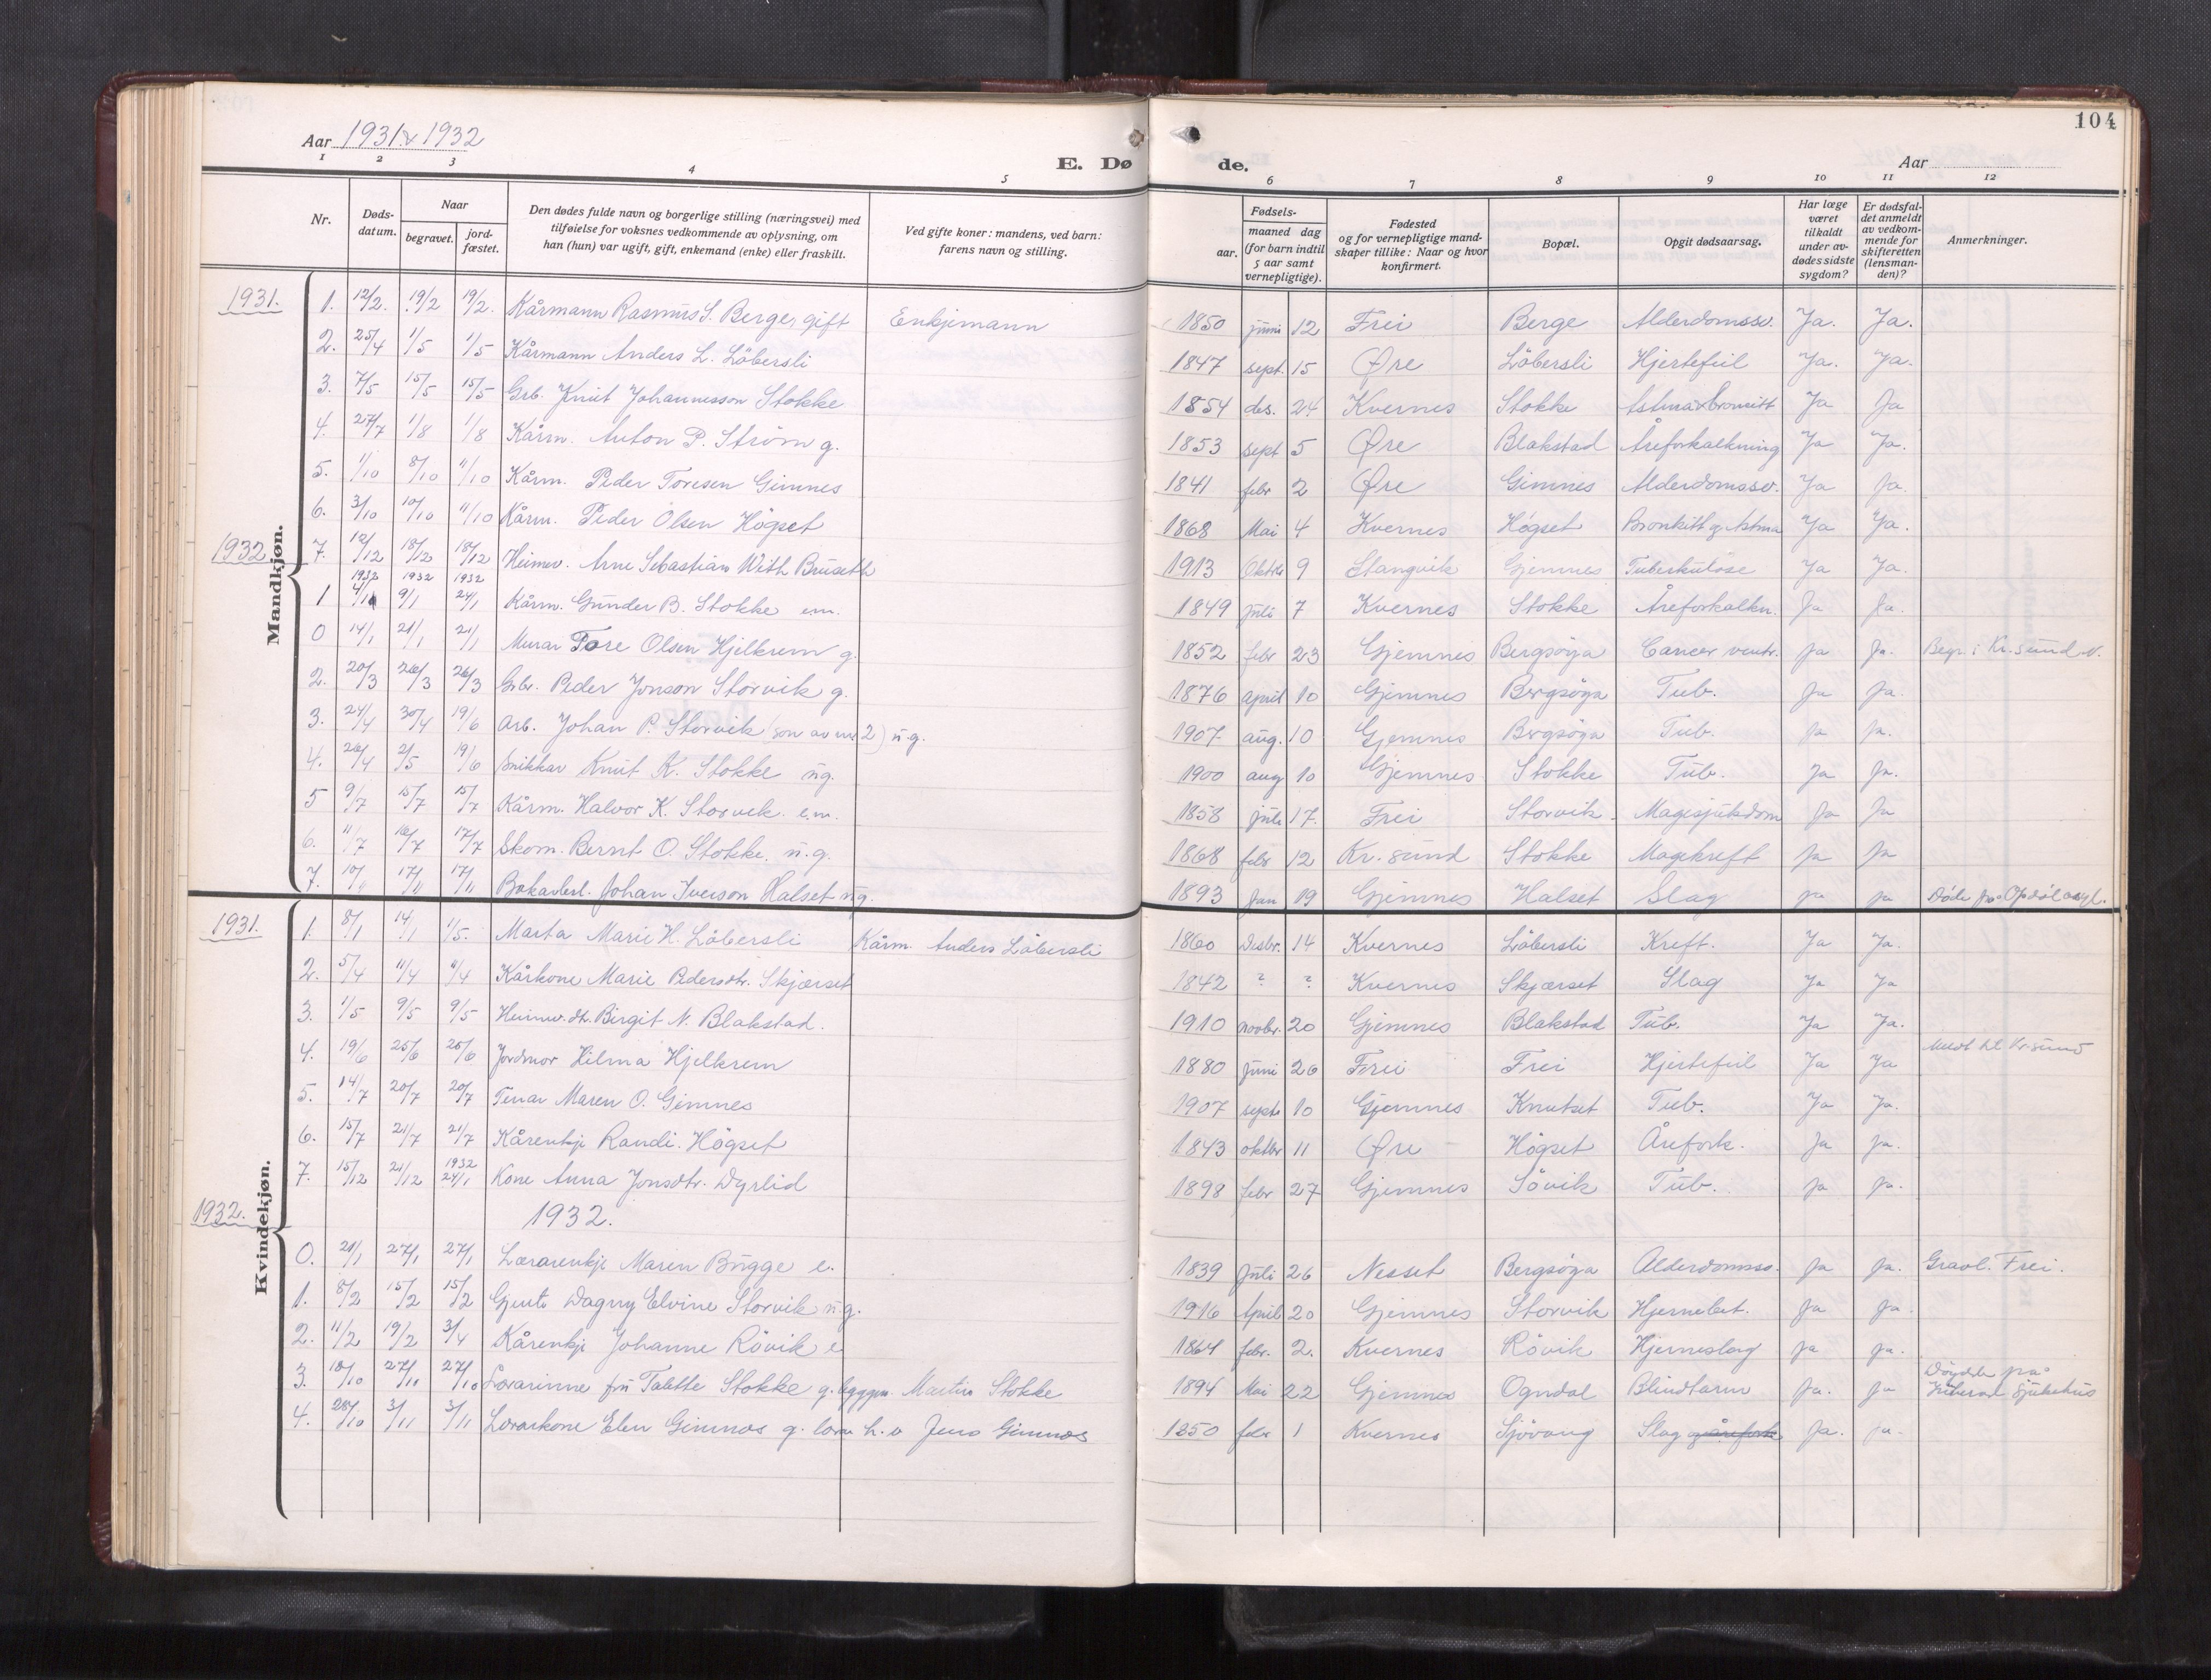 Aar 1931 & 1932
E. Dø
de.
Aar
104
1 2 3 4 5 6 7 8 9 10 11 12
Nr.
Døds-
datum.
Naar
begravet.
jord-
fæstet.
Den dødes fulde navn og borgerlige stilling (næringsvei) med
tilføielse for voksnes vedkommende av oplysning, om
han (hun) var ugift, gift, enkemand (enke) eller fraskilt.
Ved gifte koner: mandens, ved barn:
farens navn og stilling.
Fødsels-
aar.
maaned dag
(for barn indtil
5 aar samt
vernepligtige).
Fødested
og for vernepligtige mand-
skaper tillike: Naar og hvor
konfirmert.
Bopæl.
Opgit dødsaarsag.
Har læge
været
tilkaldt
under av-
dødes sidste
sygdom?
Er dødsfal-
det anmeldt
av vedkom-
mende for
skifteretten
(lensman-
den)?
Anmerkninger.
Mandkjøn.
1931. 1. 12/2. 19/2 19/2. Kårmann Rasmus S. Berge, gift Enkjemann 1850 juni 12 Frei Berge Alderdomssv. Ja. Ja.
2. 25/4 1/5 1/5 Kårmann Anders L. Löbersli 1847 sept. 15 Øre Löbersli Hjertefeil Ja. Ja.
3. 7/5 15/5 15/5 Grb. Knut Johannesson Stokke 1854 des. 24 Kvernes Stokke Astma & bronkitt Ja Ja
4. 27/7 1/8 1/8 Kårm. Anton P. Ström g. 1853 sept 5 Øre Blakstad Åreforkalkning Ja Ja.
5. 1/10 8/10 11/10 Kårm. Peder Toresen Gimnes 1841 febr 2 Øre Gimnes Alderdomssv. Ja Ja.
6. 3/10 10/10 11/10 Kårm. Peder Olsen Högset 1868 Mai 4 Kvernes Högset Bronkitt og Astma Ja Ja.
1932. 7. 12/12 18/12 18/12 Heimev. Arne Sebastian With Bruseth 1913 Oktbr 9 Stangvik Gjemnes Tuberkulose Ja Ja.
1932 1932 1932
1 4/1 9/1 24/1 Kårm. Gunder B. Stokke em. 1849 juli 7 Kvernes Stokke Åreforkalkn. Ja Ja.
0 14/1 21/1 21/1 Murar Tore Olsen Hjelkrem g. 1852 febr 23 Gjemnes Bergsöya Cancer ventr. Ja Ja. Begr. i Kr.sund N.
2. 20/3 26/3 26/3 Grbr. Peder Jonson Storvik g. 1876 april 10 Gjemnes Bergsöya Tub. Ja Ja.
3. 24/4 30/4 19/6 Arb. Johan P. Storvik (son av nr 2) ug. 1907 aug. 10 Gjemnes Bergsöya Tub. Ja Ja.
4. 26/4 2/5 19/6 Snikkar Knut K. Stokke ug. 1900 aug 10 Gjemnes Stokke Tub. Ja Ja.
5 9/7 15/7 15/7 Kårm. Halvor K. Storvik. e.m. 1858 juli 17. Frei Storvik Magesjukdom Ja Ja
6. 11/7 16/7 17/7 Skom. Bernt O. Stokke. u.g. 1868 febr 12 Kr.sund Stokke Magekreft Ja Ja
7. 10/11 17/11 17/11 Johan Iverson Halset ug. 1893 Jan 19 Gjemnes Halset Slag Ja Ja Døde på Opdöl asyl.
Kvindekjøn.
1931. 1. 8/1 14/1 1/5. Marta Marie H. Löbersli Kårm. Anders Löbersli 1860 Desbr. 14 Kvernes Löbersli Kreft. Ja Ja.
2. 5/4 11/4 11/4 Kårkone Marie Pedersdtr. Skjærset 1842 ? ? Kvernes Skjærset Slag Ja Ja
3. 1/5 9/5 9/5 Heimev.dt. Birgit N. Blakstad. 1910 novbr. 20 Gjemnes Blakstad Tub. Ja Ja.
4. 19/6 25/6 25/6 Jordmor Hilma Hjelkrem 1880 Juni 26 Frei Frei Hjertefeil Ja Ja Meldt til Kr.sund
5. 14/7 20/7 20/7 Tenar Maren O. Gimnes 1907 septr 10 Gjemnes Knutset Tub. Ja Ja.
6. 15/7 21/7 21/7 Kårenkje Randi. Högset 1843 oktbr 11 Øre Högset Årefork. Ja Ja.
1932
7. 15/12 21/12 24/1 Kone Anna Jonsdtr. Dyrlid 1898 febr 27 Gjemnes Sövik Tub. Ja Ja.
1932. 1932.
0. 21/1 27/1 27/1 Lærarenkje Maren Bugge e. 1839 Juli 26 Nesset Bergsöya Alderdomssv. Ja Ja. Gravl. Frei.
1. 8/2 15/2 15/2 Gjente Dagny Elvine Storvik u.g. 1916 April 20 Gjemnes Storvik Hjernebet. Ja Ja.
2. 11/2 19/2 3/4 Kårenkje Johanne Rövik e 1864 febr. 2. Kvernes Rövik Hjerneslag Ja Ja.
3. 18/10 27/10 27/10 Lærarinne fru Talette Stokke g. byggm. Martin Stokke 1894 Mai 22 Gjemnes Ogndal Blindtarm Ja. Ja Döydde på sjukehus
4. 28/10 3/11 3/11 Lærarkone Elen Gimnes g. lærar h.v Jens Gimnes 1850 febr 1 Kvernes Sjövang Slag og årefork Ja. Ja.